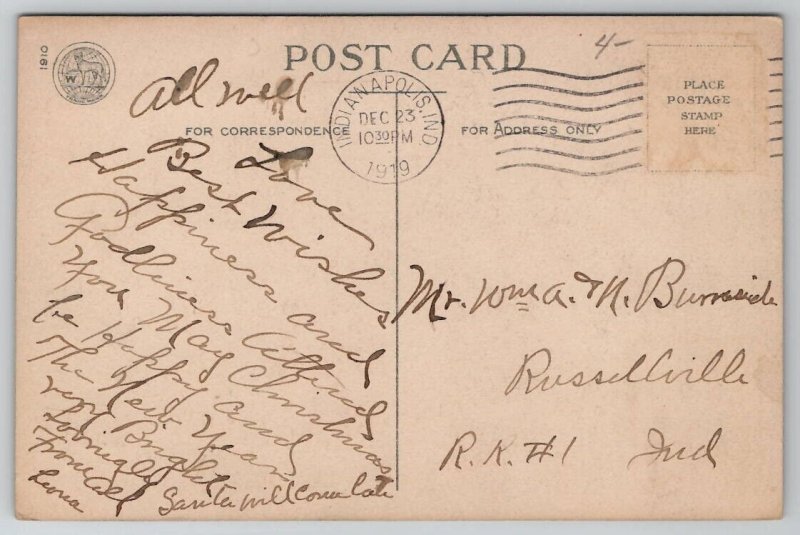 1910
POST CARD
4-
W
INDIANAPOLIS, IND.
DEC 23
10 30 PM
1919
PLACE
POSTAGE
STAMP
HERE
FOR CORRESPONDENCE
FOR ADDRESS ONLY
All well
Love
Best Wishes
Happiness and
Godliness Attend
You May Christmas
be Happy and
The New Year
very Bright
From all
Leona
Santa will come late
Mr. Wm A. & N. Burnside
Russellville
R.R. #1 Ind